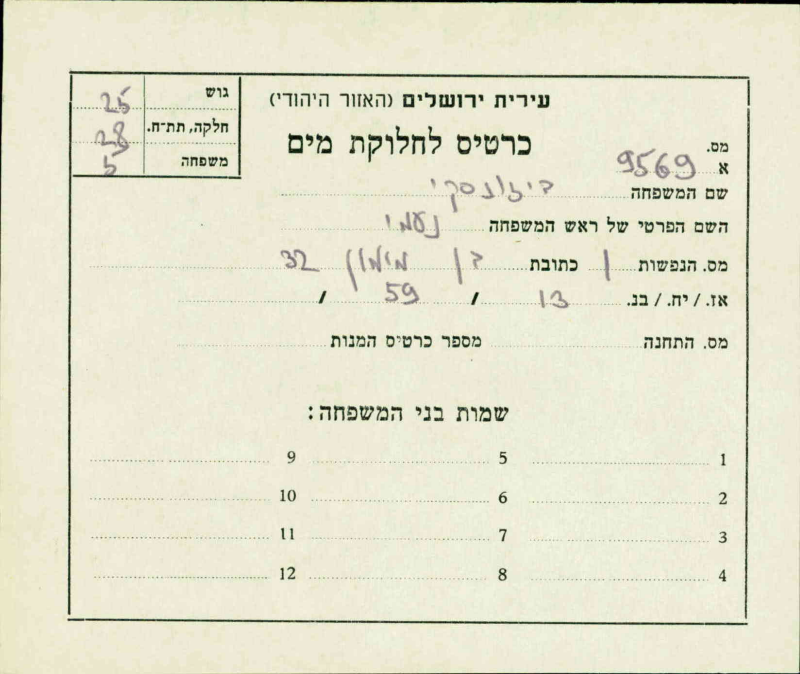 עירית ירושלים (האזור היהודי)
כרטיס לחלוקת מים
גוש 25
חלקה, תת־ח. 28
משפחה 5
מס.
א 9569
שם המשפחה
השם הפרטי של ראש המשפחה נעמי
מס. הנפשות 1 כתובת בן מימון 32
אז. / יח. / בנ. 13 / 59 /
מס. התחנה מספר כרטיס המנות
שמות בני המשפחה:
1 5 9
2 6 10
3 7 11
4 8 12